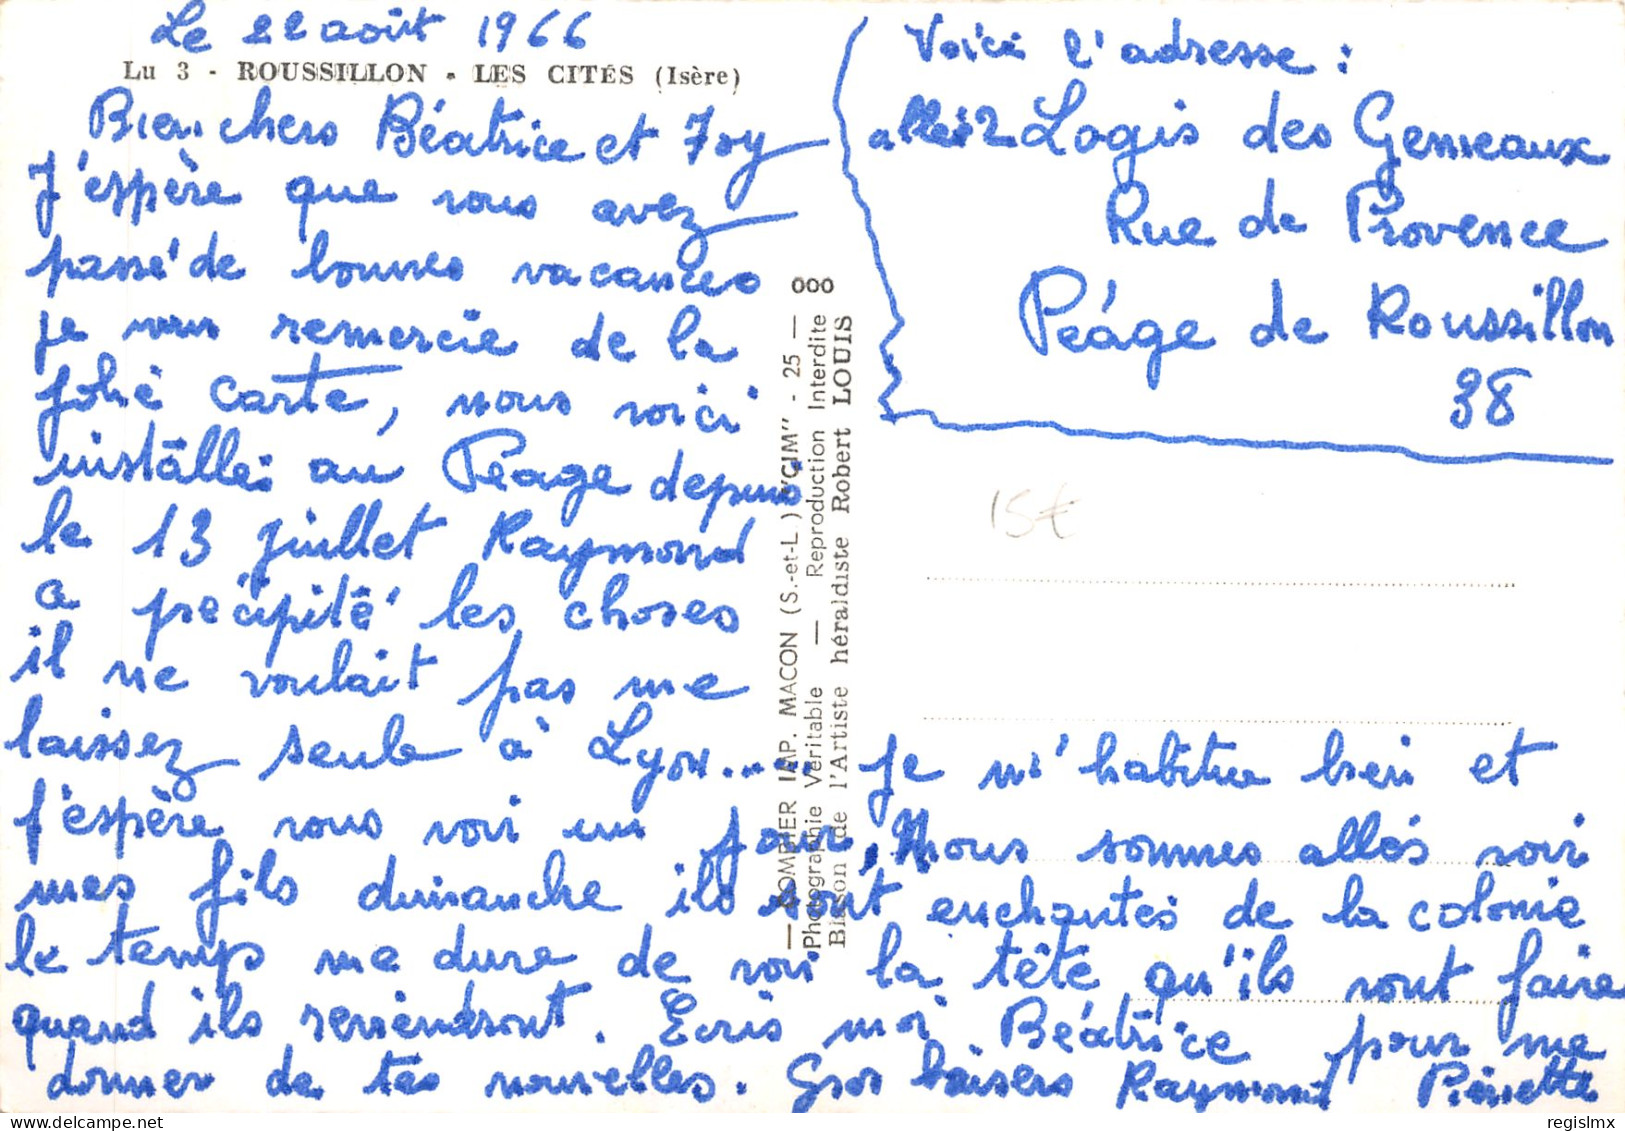 Le 22 août 1966
Lu 3 - ROUSSILLON - LES CITÉS (Isère)
Bien chers Béatrice et
J'espère que vous avez
passé de bonnes vacances
je vous remercie de la
jolie carte, nous voici
installés au Péage depuis
le 13 juillet Raymond
a précipité les choses
il ne voulait pas me
laissez seule à Lyon.... je m'habitue bien et
j'espère vous voir un jour, Nous sommes allés voir
mes fils dimanche ils sont enchantés de la colonie
le temps me dure de voir la tête qu'ils vont faire
quand ils reviendront. Ecris moi Béatrice pour me
donner de tes nouvelles. Gros baisers Raymond Pierrette
Voici l'adresse :
allée 2 Logis des Gemeaux
Rue de Provence
Péage de Roussillon
38
15€
— COMBIER IMP. MACON (S.-et-L.) "CIM" - 25 — 000
Photographie Véritable — Reproduction Interdite
Blason de l'Artiste héraldiste Robert LOUIS
delcampe.net
regislmx